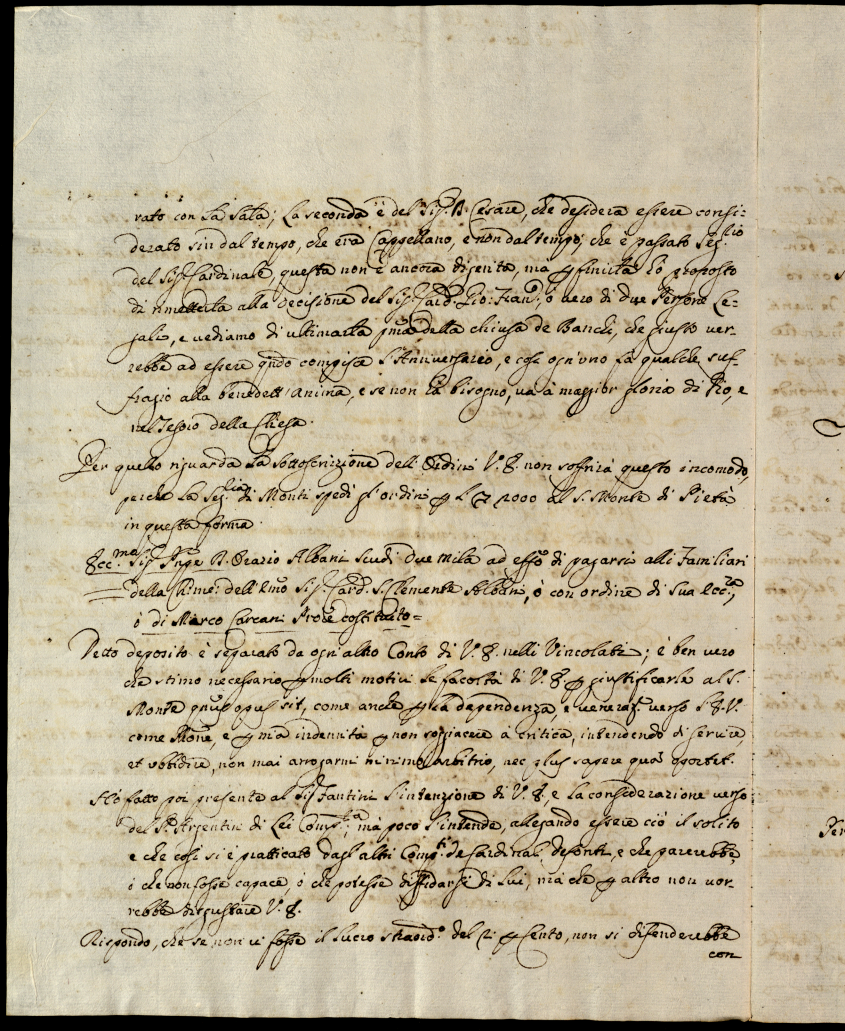 rato con La Sala; La seconda è del Sig.r D. Cesare, che desidera essere consi-
derato sin dal tempo, che era Cappellano, e non dal tempo, che è passato Seg.rio
del Sig.r Cardinale, questa non è ancora digerita, ma p finirla hò proposto
di rimetterla alla decisione del Sig.r Card. Gio: Fran.o, ò vero di due Persone Le-
gali, e vediamo di ultimarla pma della chiusa de Banchi, che giusto ver-
rebbe ad essere qndo compisce l'Anniversario, e così ogn'uno fà qualche suf-
fragio alla benedett'Anima, e se non hà bisogno, và à maggior gloria di Dio, e
nel Tesoro della Chiesa.
Per quello riguarda La sottoscrizione dell'Ordini V. E. non soffrirà questo incomodo,
perche La Seg.ria di Monti spedì gl'ordini p 2000 al S. Monte di Pietà
in questa forma.
Ecc.mo Sig.r Pnpe D. Orazio Albani Scudi due mila ad effo di pagarsi alli Familiari
della Ch: me: dell'Emo Sig.r Card. S. Clemente Albani, ò con ordine di Sua Ecc.za,
ò di Marco Carcani Proc.e costituito =
Detto deposito è separato da ogn'altro Conto di V. E. nelli Vincolati; è ben vero
che stimo necessario p molti motivi le facoltà di V. E. p giustificarle al S.
Monte qnus opus sit, come anche p La dependenza, e veneraz.e verso l'E. V.
come Pñne, e p mia indennità p non soggiacere à critica, intendendo di servire,
et obbidire, non mai arrogarmi minimo arbitrio, nec plus sapere quam oportet.
Hò fatto poi presente al Sig.r Fantini l'intenzione di V. E. e la considerazione verso
del S.r Argentini di Lei Comp.ta; mà poco l'intende, allegando essere ciò il solito
e che così si è pratticato dagl'altri Comp.ti de Cardinali defonti, e che parerebbe,
ò che non fosse capace, ò che potesse diffidarsi di Lui, mà che p altro non vor-
rebbe disgustare V. E.
Rispondo, che se non vi fosse il lucro straord.o del 2 p Cento, non si difenderebbe
con